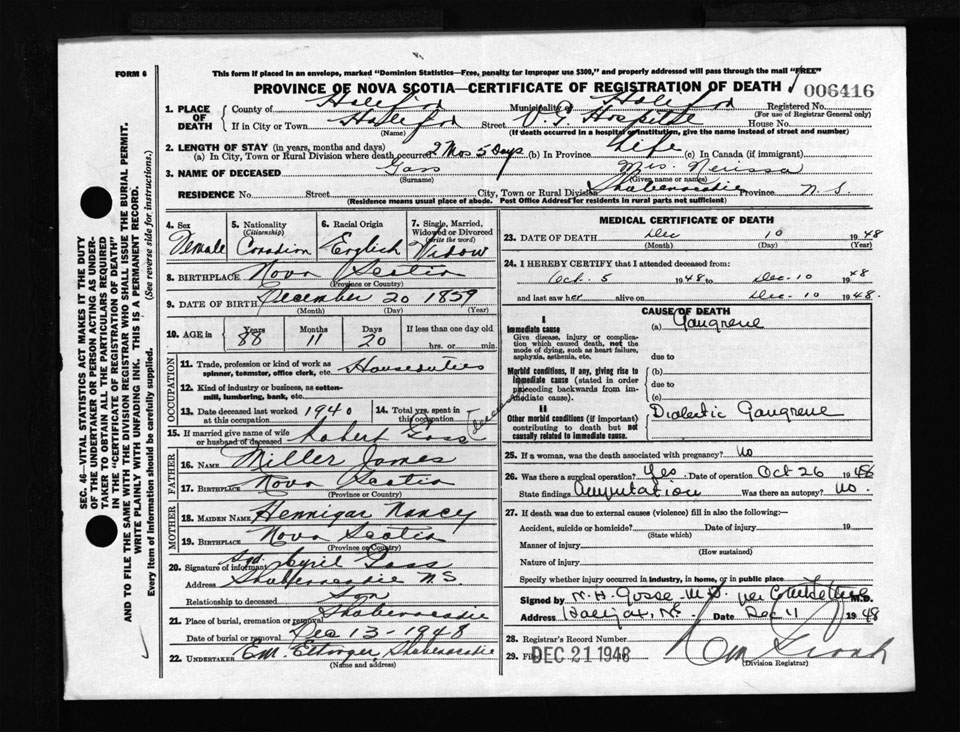 FORM 6
This form if placed in an envelope, marked "Dominion Statistics—Free, penalty for improper use $300," and properly addressed will pass through the mail "FREE"
PROVINCE OF NOVA SCOTIA—CERTIFICATE OF REGISTRATION OF DEATH
006416
1. PLACE OF DEATH
County of Halifax Municipality Halifax Registered No.
(For use of Registrar General only)
If in City or Town Halifax Street V. G. Hospital House No.
(Name) (If death occurred in a hospital or institution, give the name instead of street and number)
2. LENGTH OF STAY (in years, months and days)
(a) In City, Town or Rural Division where death occurred 2 Mos 5 Days (b) In Province Life (c) In Canada (if immigrant)
3. NAME OF DECEASED Gass Mrs. Nerissa
(Surname) (Given name or names)
RESIDENCE No. Street City, Town or Rural Division Shubenacadie Province N. S
(Residence means usual place of abode. Post Office Address for residents in rural parts not sufficient)
4. Sex Female
5. Nationality (Citizenship) Canadian
6. Racial Origin English
7. Single, Married, Widowed or Divorced (write the word) Widow
8. BIRTHPLACE Nova Scotia
(Province or Country)
9. DATE OF BIRTH December 20 1859
(Month) (Day) (Year)
10. AGE in Years 88 Months 11 Days 20 If less than one day old
hrs. or min.
OCCUPATION
11. Trade, profession or kind of work as spinner, teamster, office clerk, etc. Houseduties
12. Kind of industry or business, as cotton-mill, lumbering, bank, etc.
13. Date deceased last worked at this occupation 1940
14. Total yrs. spent in this occupation
15. If married give name of wife or husband of deceased Robert Gass
FATHER
16. NAME Miller James
17. BIRTHPLACE Nova Scotia
(Province or Country)
MOTHER
18. MAIDEN NAME Hennigar Nancy
19. BIRTHPLACE Nova Scotia
(Province or Country)
20. Signature of informant Sgd. Cyril Gass
Address Shubenacadie N.S.
Relationship to deceased Son
21. Place of burial, cremation or removal Shubenacadie
Date of burial or removal Dec 13-1948
22. UNDERTAKER E.M. Ettinger, Shubenacadie
(Name and address)
MEDICAL CERTIFICATE OF DEATH
23. DATE OF DEATH Dec 10 1948
(Month) (Day) (Year)
24. I HEREBY CERTIFY that I attended deceased from:
Oct. 5 1948 to Dec-10 1948
and last saw her alive on Dec-10 1948.
CAUSE OF DEATH
I
Immediate cause
Give disease, injury or complication which caused death, not the mode of dying, such as heart failure, asphyxia, asthenia, etc.
(a) Gangrene
due to
Morbid conditions, if any, giving rise to immediate cause (stated in order proceeding backwards from immediate cause).
(b)
due to
(c)
II
Other morbid conditions (if important) contributing to death but not causally related to immediate cause.
Dialectic Gangrene
25. If a woman, was the death associated with pregnancy? No
26. Was there a surgical operation? Yes Date of operation Oct 26 1948
State findings Amputation Was there an autopsy? No.
27. If death was due to external causes (violence) fill in also the following:—
Accident, suicide or homicide? Date of injury 19
(State which)
Manner of injury
(How sustained)
Nature of injury
Specify whether injury occurred in industry, in home, or in public place
Signed by N. H. Gosse M.D. per M.D.
Address Halifax, N.S. Date Dec 11 1948
28. Registrar's Record Number
29. Filed DEC 21 1948
(Division Registrar)
SEC. 46—VITAL STATISTICS ACT MAKES IT THE DUTY
OF THE UNDERTAKER OR PERSON ACTING AS UNDER-
TAKER TO OBTAIN ALL THE PARTICULARS REQUIRED
IN THE "CERTIFICATE OF REGISTRATION OF DEATH"
AND TO FILE THE SAME WITH THE DIVISION REGISTRAR WHO SHALL ISSUE THE BURIAL PERMIT.
WRITE PLAINLY WITH UNFADING INK. THIS IS A PERMANENT RECORD.
Every item of information should be carefully supplied. (See reverse side for instructions.)